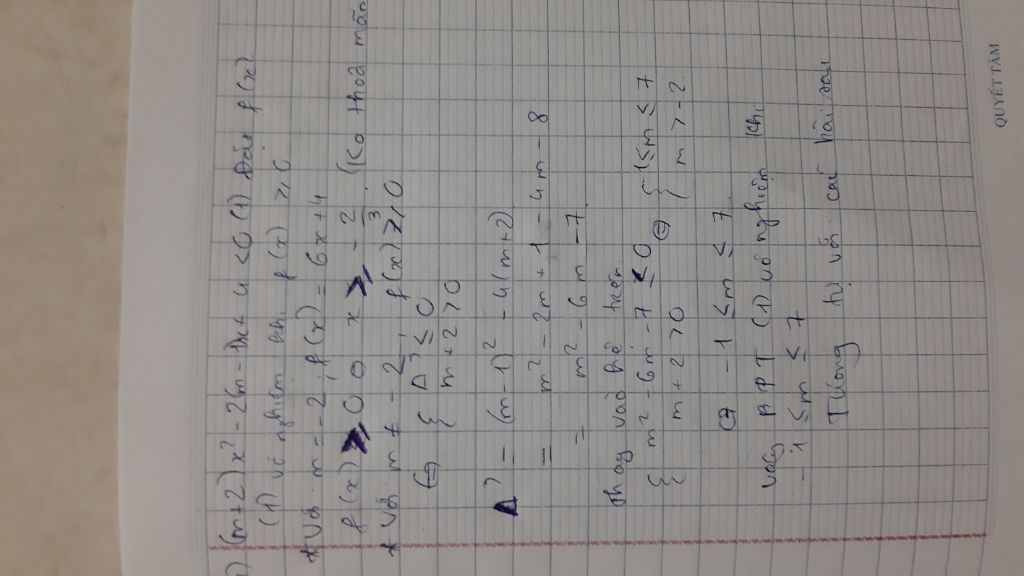 a) (m+2)x² - 2(m-1)x + 4 < 0 (1) Đặt f(x)
(1) vô nghiệm khi f(x) ≥ 0
* Với m = -2, f(x) = 6x + 4
f(x) ≥ 0 ⇔ x ≥ -2/3 (Ko thoả mãn
* Với m ≠ -2, f(x) ≥ 0
⇔ { Δ' ≤ 0
{ m + 2 > 0
Δ' = (m-1)² - 4(m+2)
= m² - 2m + 1 - 4m - 8
= m² - 6m - 7
Thay vào hệ trên
{ m² - 6m - 7 ≤ 0 ⇔ { -1 ≤ m ≤ 7
{ m + 2 > 0 { m > -2
⇔ -1 ≤ m ≤ 7
Vậy BPT (1) vô nghiệm khi
-1 ≤ m ≤ 7
Tương tự với các bài sau
QUYẾT TÂM